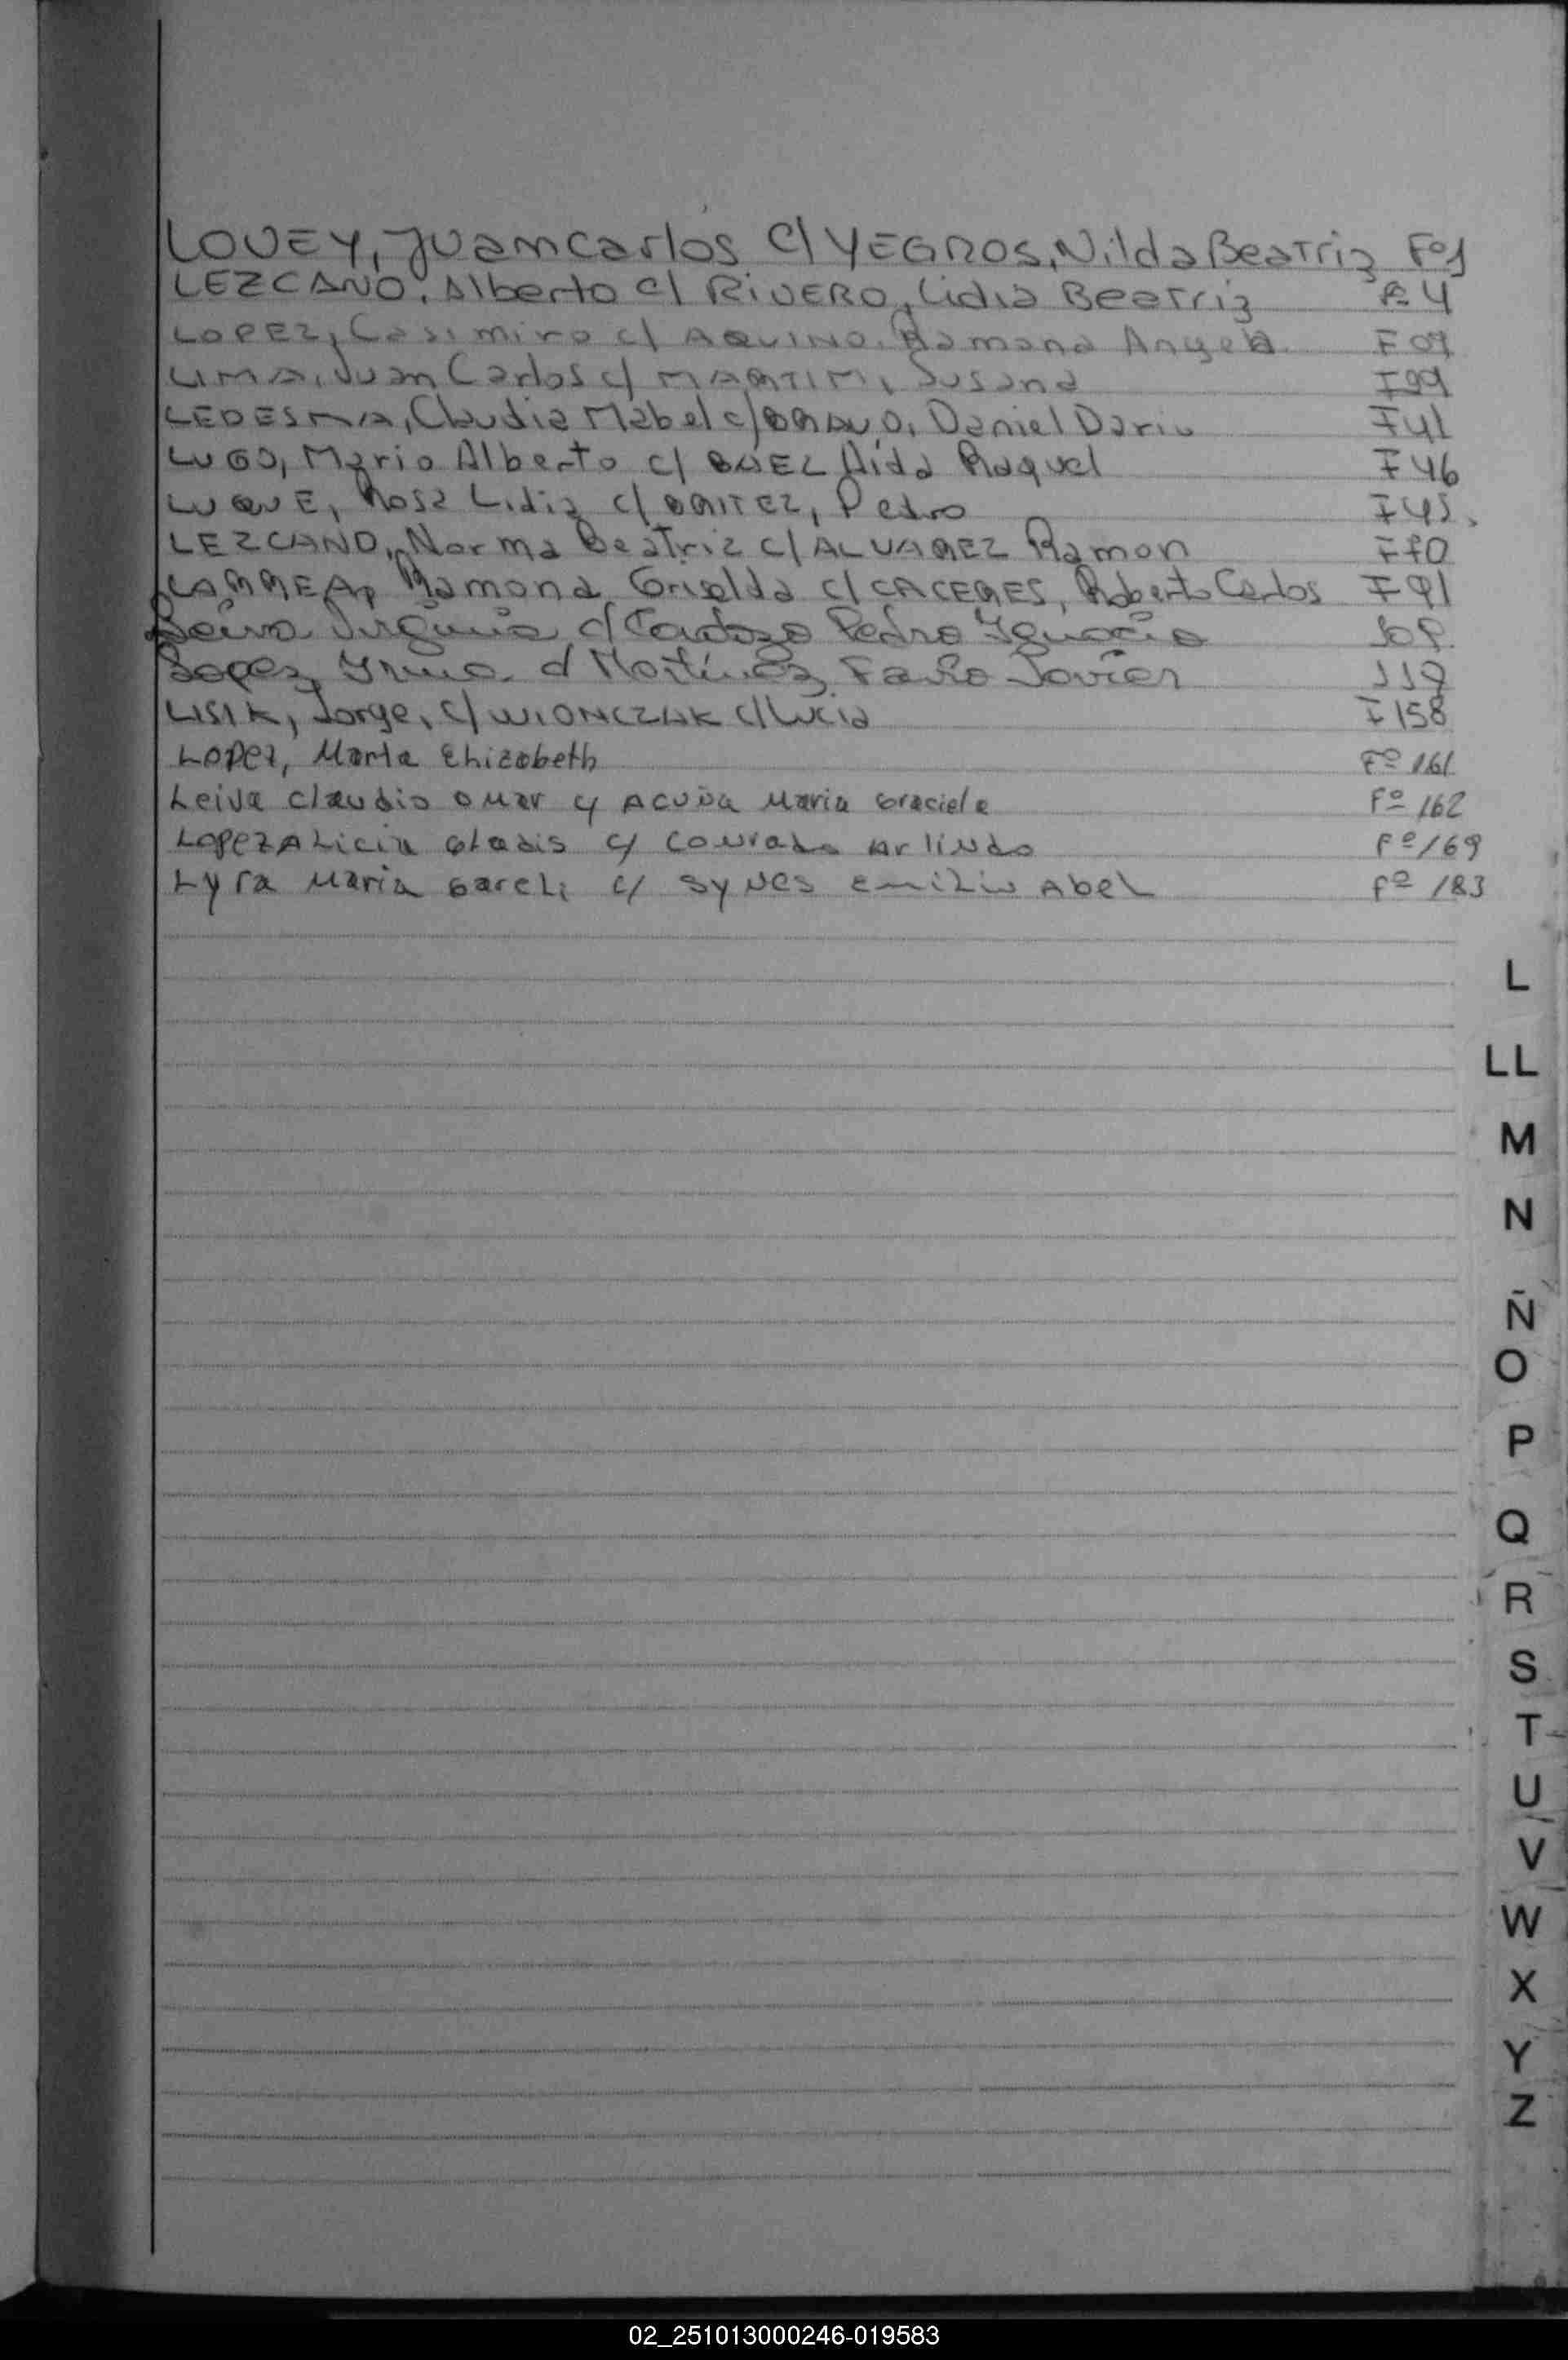 LOVEY, Juan Carlos c/ YEGROS, Nilda Beatriz Fº1
LEZCANO, Alberto c/ RIVERO, Lidia Beatriz Fº 4
LOPEZ, Casimiro c/ AQUINO, Ramona Angela F 07
LIMA, Juan Carlos c/ MARTIN, Susana
LEDESMA, Claudia Mabel c/ BRAVO, Daniel Dario F 41
LUGO, Mario Alberto c/ BAEZ Aida Raquel F 46
LUQUE, Rosa Lidia c/ , Pedro
LEZCANO, Norma Beatriz c/ ALVAREZ Ramon F 70
Ramona Griselda c/ CACERES, Roberto Carlos F 91
Leiva Virginia c/ Cardozo Pedro Ignacio
Lopez, Irma c/ Martínez, Fabio Javier 119
LISIK, Jorge, c/ WIONCZAK c/ Lucia F 158
Lopez, Marta Elizabeth Fº 161
Leiva Claudio Omar c/ Acuña Maria Graciela Fº 162
Lopez Alicia Gladis c/ Conrado Arlindo Fº 169
Lyra Maria Gareli c/ Synes Emilio Abel Fº 183
L
LL
M
N
Ñ
O
P
Q
R
S
T
U
V
W
X
Y
Z
02_251013000246-019583